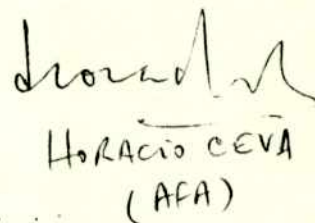 HORACIO CEVA
(AFA)